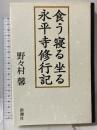 食う寝る坐る
永平寺修行記
野々村 馨
新潮社